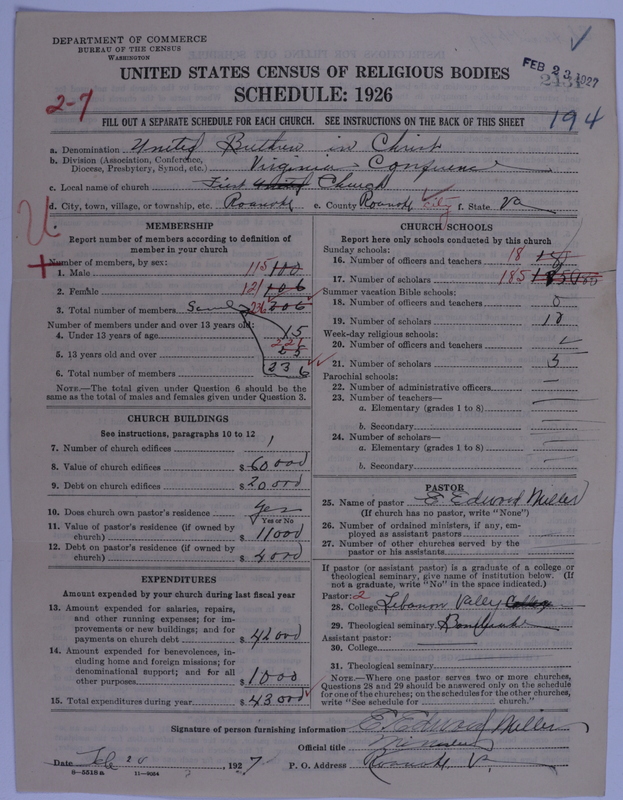 DEPARTMENT OF COMMERCE
BUREAU OF THE CENSUS
WASHINGTON
FEB 23 1927
UNITED STATES CENSUS OF RELIGIOUS BODIES
SCHEDULE: 1926
2-7
194
FILL OUT A SEPARATE SCHEDULE FOR EACH CHURCH. SEE INSTRUCTIONS ON THE BACK OF THIS SHEET
a. Denomination United Brethren in Christ
b. Division (Association, Conference, Diocese, Presbytery, Synod, etc.) Virginia Conference
c. Local name of church First United Church
d. City, town, village, or township, etc. Roanoke e. County Roanoke city f. State Va
MEMBERSHIP
Report number of members according to definition of
member in your church
Number of members, by sex:
1. Male 115 100
2. Female 121 106
3. Total number of members Same 236 206
Number of members under and over 13 years old:
4. Under 13 years of age 15
5. 13 years old and over 221
6. Total number of members 236
NOTE.—The total given under Question 6 should be the
same as the total of males and females given under Question 3.
CHURCH BUILDINGS
See instructions, paragraphs 10 to 12
7. Number of church edifices 1
8. Value of church edifices $ 60 000
9. Debt on church edifices $ 20 000
10. Does church own pastor's residence Yes
Yes or No
11. Value of pastor's residence (if owned by
church) $ 11000
12. Debt on pastor's residence (if owned by
church) $ 4000
EXPENDITURES
Amount expended by your church during last fiscal year
13. Amount expended for salaries, repairs,
and other running expenses; for im-
provements or new buildings; and for
payments on church debt $ 42000
14. Amount expended for benevolences, in-
cluding home and foreign missions; for
denominational support; and for all
other purposes $ 1000
15. Total expenditures during year $ 43000
CHURCH SCHOOLS
Report here only schools conducted by this church
Sunday schools:
16. Number of officers and teachers 18
17. Number of scholars 185
Summer vacation Bible schools:
18. Number of officers and teachers 0
19. Number of scholars
Week-day religious schools:
20. Number of officers and teachers
21. Number of scholars
Parochial schools:
22. Number of administrative officers
23. Number of teachers—
a. Elementary (grades 1 to 8)
b. Secondary
24. Number of scholars—
a. Elementary (grades 1 to 8)
b. Secondary
PASTOR
25. Name of pastor E Edward Miller
(If church has no pastor, write "None")
26. Number of ordained ministers, if any, em-
ployed as assistant pastors
27. Number of other churches served by the
pastor or his assistants
If pastor (or assistant pastor) is a graduate of a college or
theological seminary, give name of institution below. (If
not a graduate, write "No" in the space indicated.)
Pastor: 2
28. College Lebanon Valley College
29. Theological seminary Bonebrake
Assistant pastor:
30. College
31. Theological seminary
NOTE.—Where one pastor serves two or more churches,
Questions 28 and 29 should be answered only on the schedule
for one of the churches; on the schedules for the other churches,
write "See schedule for church."
Signature of person furnishing information E. Edward Miller
Official title Minister
Date Feb 20, 1927 P. O. Address Roanoke V.
8-5518a 11-9054